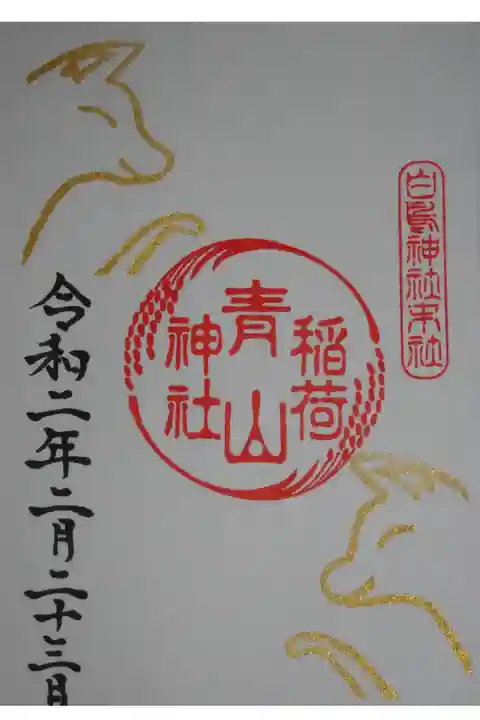 白鳥神社末社
稲荷
青山
神社
令和二年二月二十三日